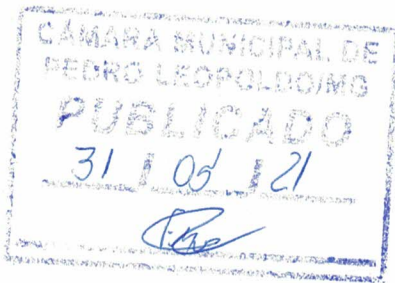 CÂMARA MUNICIPAL DE
PEDRO LEOPOLDO/MG
PUBLICADO
31 / 05 / 21